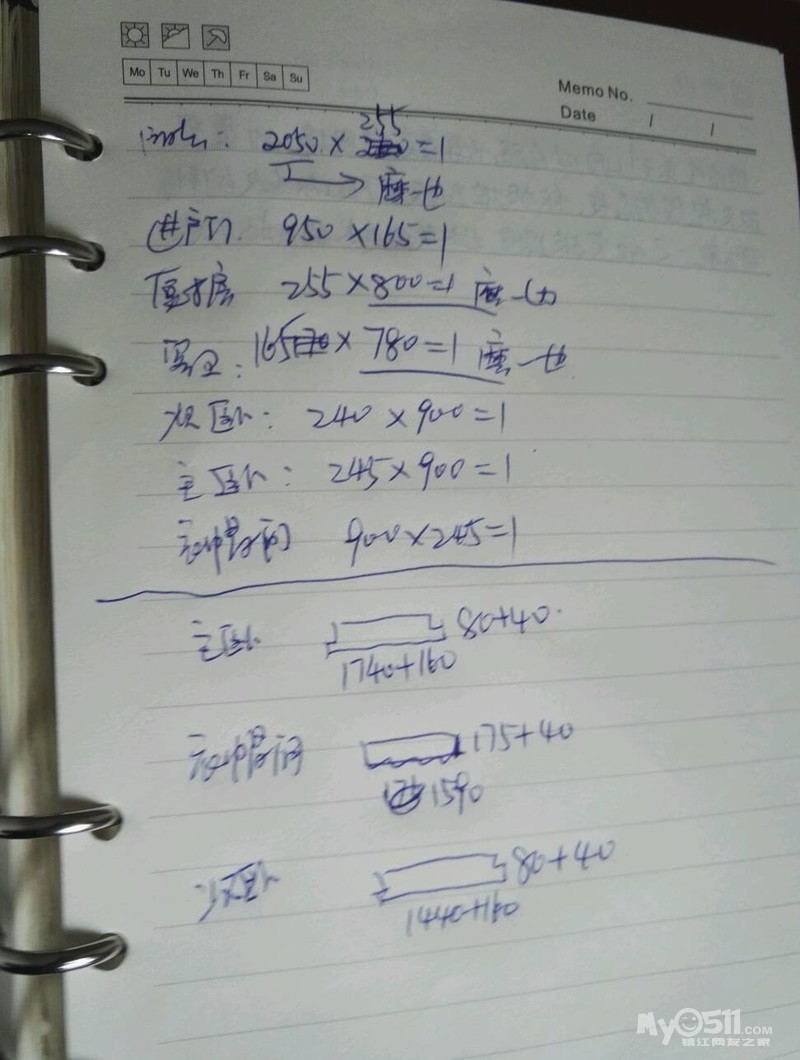 Mo Tu We Th Fr Sa Su
Memo No.
Date / /
2050 × 255 =1
磨一边
进户门 950 ×165=1
255 × 800=1 磨一边
165 × 780=1 磨一边
次卧: 240 ×900=1
主卧: 245×900=1
衣帽间 900×245=1
主卧 80+40
1740+160
衣帽间 175+40
1590
次卧 80+40
1440+160
My0511.com
镇江网友之家